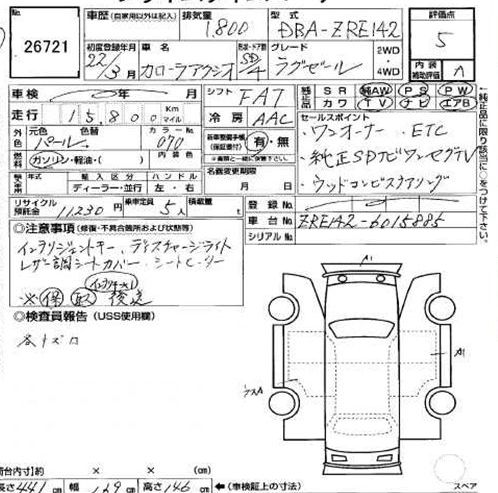 No. 26721
車歴 (自家用以外は記入) 排気量 1,800 型式 DBA-ZRE142 評価点 5
初度登録年月 22/3月 車名 カローラアクシオ ドア・形状 SD/4 グレード ラグゼール 2WD・4WD 内装補助評価 A
車検 年 月 シフト FAT 純 SR 純AW PS PW
カワ TV ナビ エアB
走行 15,800 Km マイル 冷房 AAC
元色 パール 色替 カラーNo. 070 有・無 セールスポイント
・ワンオーナー ・ETC
燃料 ガソリン・軽油・( ) 内装色
・純正SDナビワンセグTV
・ウッドコンビステアリング
輸入区分 ハンドル 名義変更期限 月 日
ディーラー・並行 左・右
リサイクル預託金 11230円 乗車定員 5人 積載量 t
登録No.
車台No. ZRE142-6015885
シリアルNo.
◎注意事項 (修復・不具合箇所および状態等)
インテリジェントキー、ディスチャージライト
レザー調シートカバー、シートヒーター
※ 保 取 後送
◎検査員報告 (USS使用欄)
各キズ小
A1
A1
荷台内寸 約 × × (cm)
長さ 441 幅 169 高さ 146 cm ←(車検証上の寸法)
スペア
↑純正品に限り該当に○をつけて下さい。